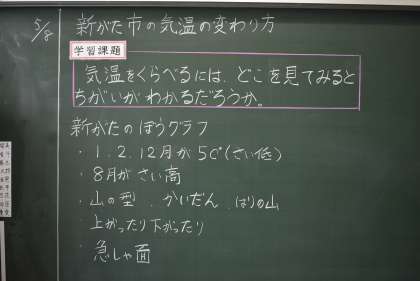 5/8
新がた市の気温の変わり方
学習課題
気温をくらべるには、どこを見てみると
ちがいがわかるだろうか。
新がたのぼうグラフ
・1、2、12月が5C°(さい低)
・8月がさい高
・山の型、かいだん、はりの山
上がったり下がったり
・急しゃ面